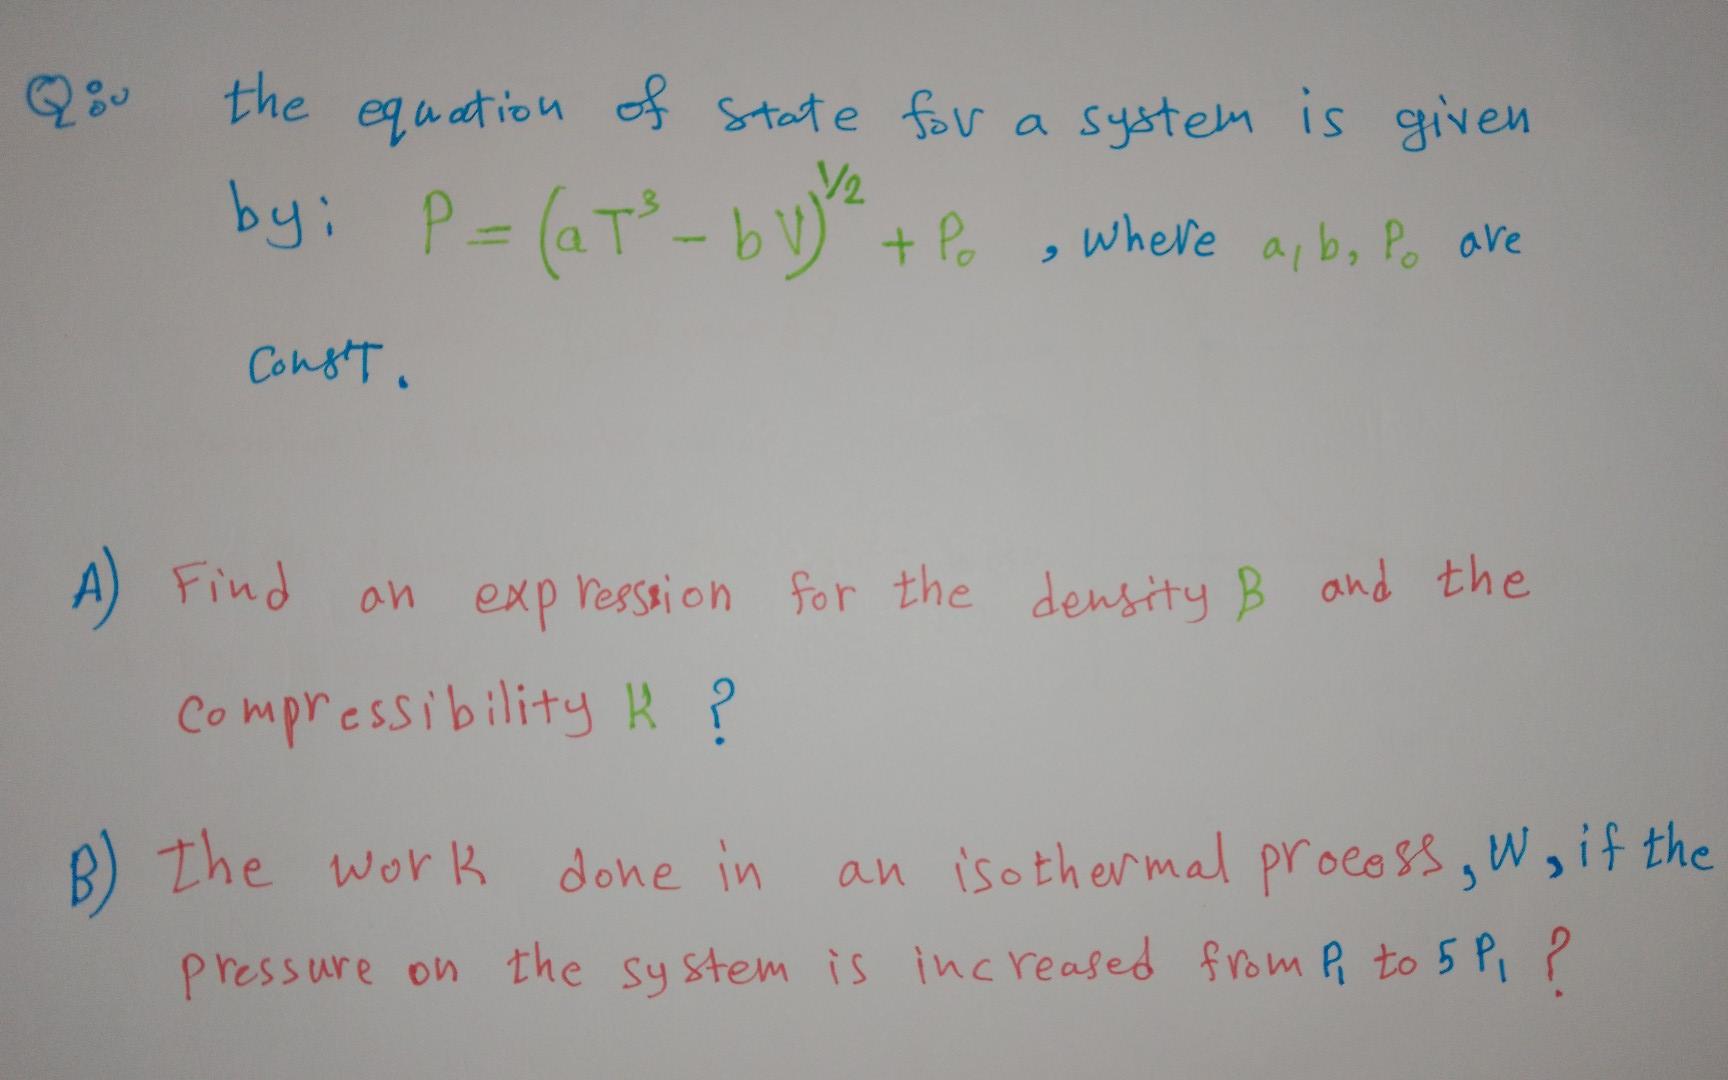 Q:- the equation of state for a system is given
by; P = (aT³ - bV)^1/2 + P₀ , where a, b, P₀ are
const.
A) Find an expression for the density B and the
compressibility K ?
B) the work done in an isothermal process, W, if the
pressure on the system is increased from P₁ to 5 P₁ ?